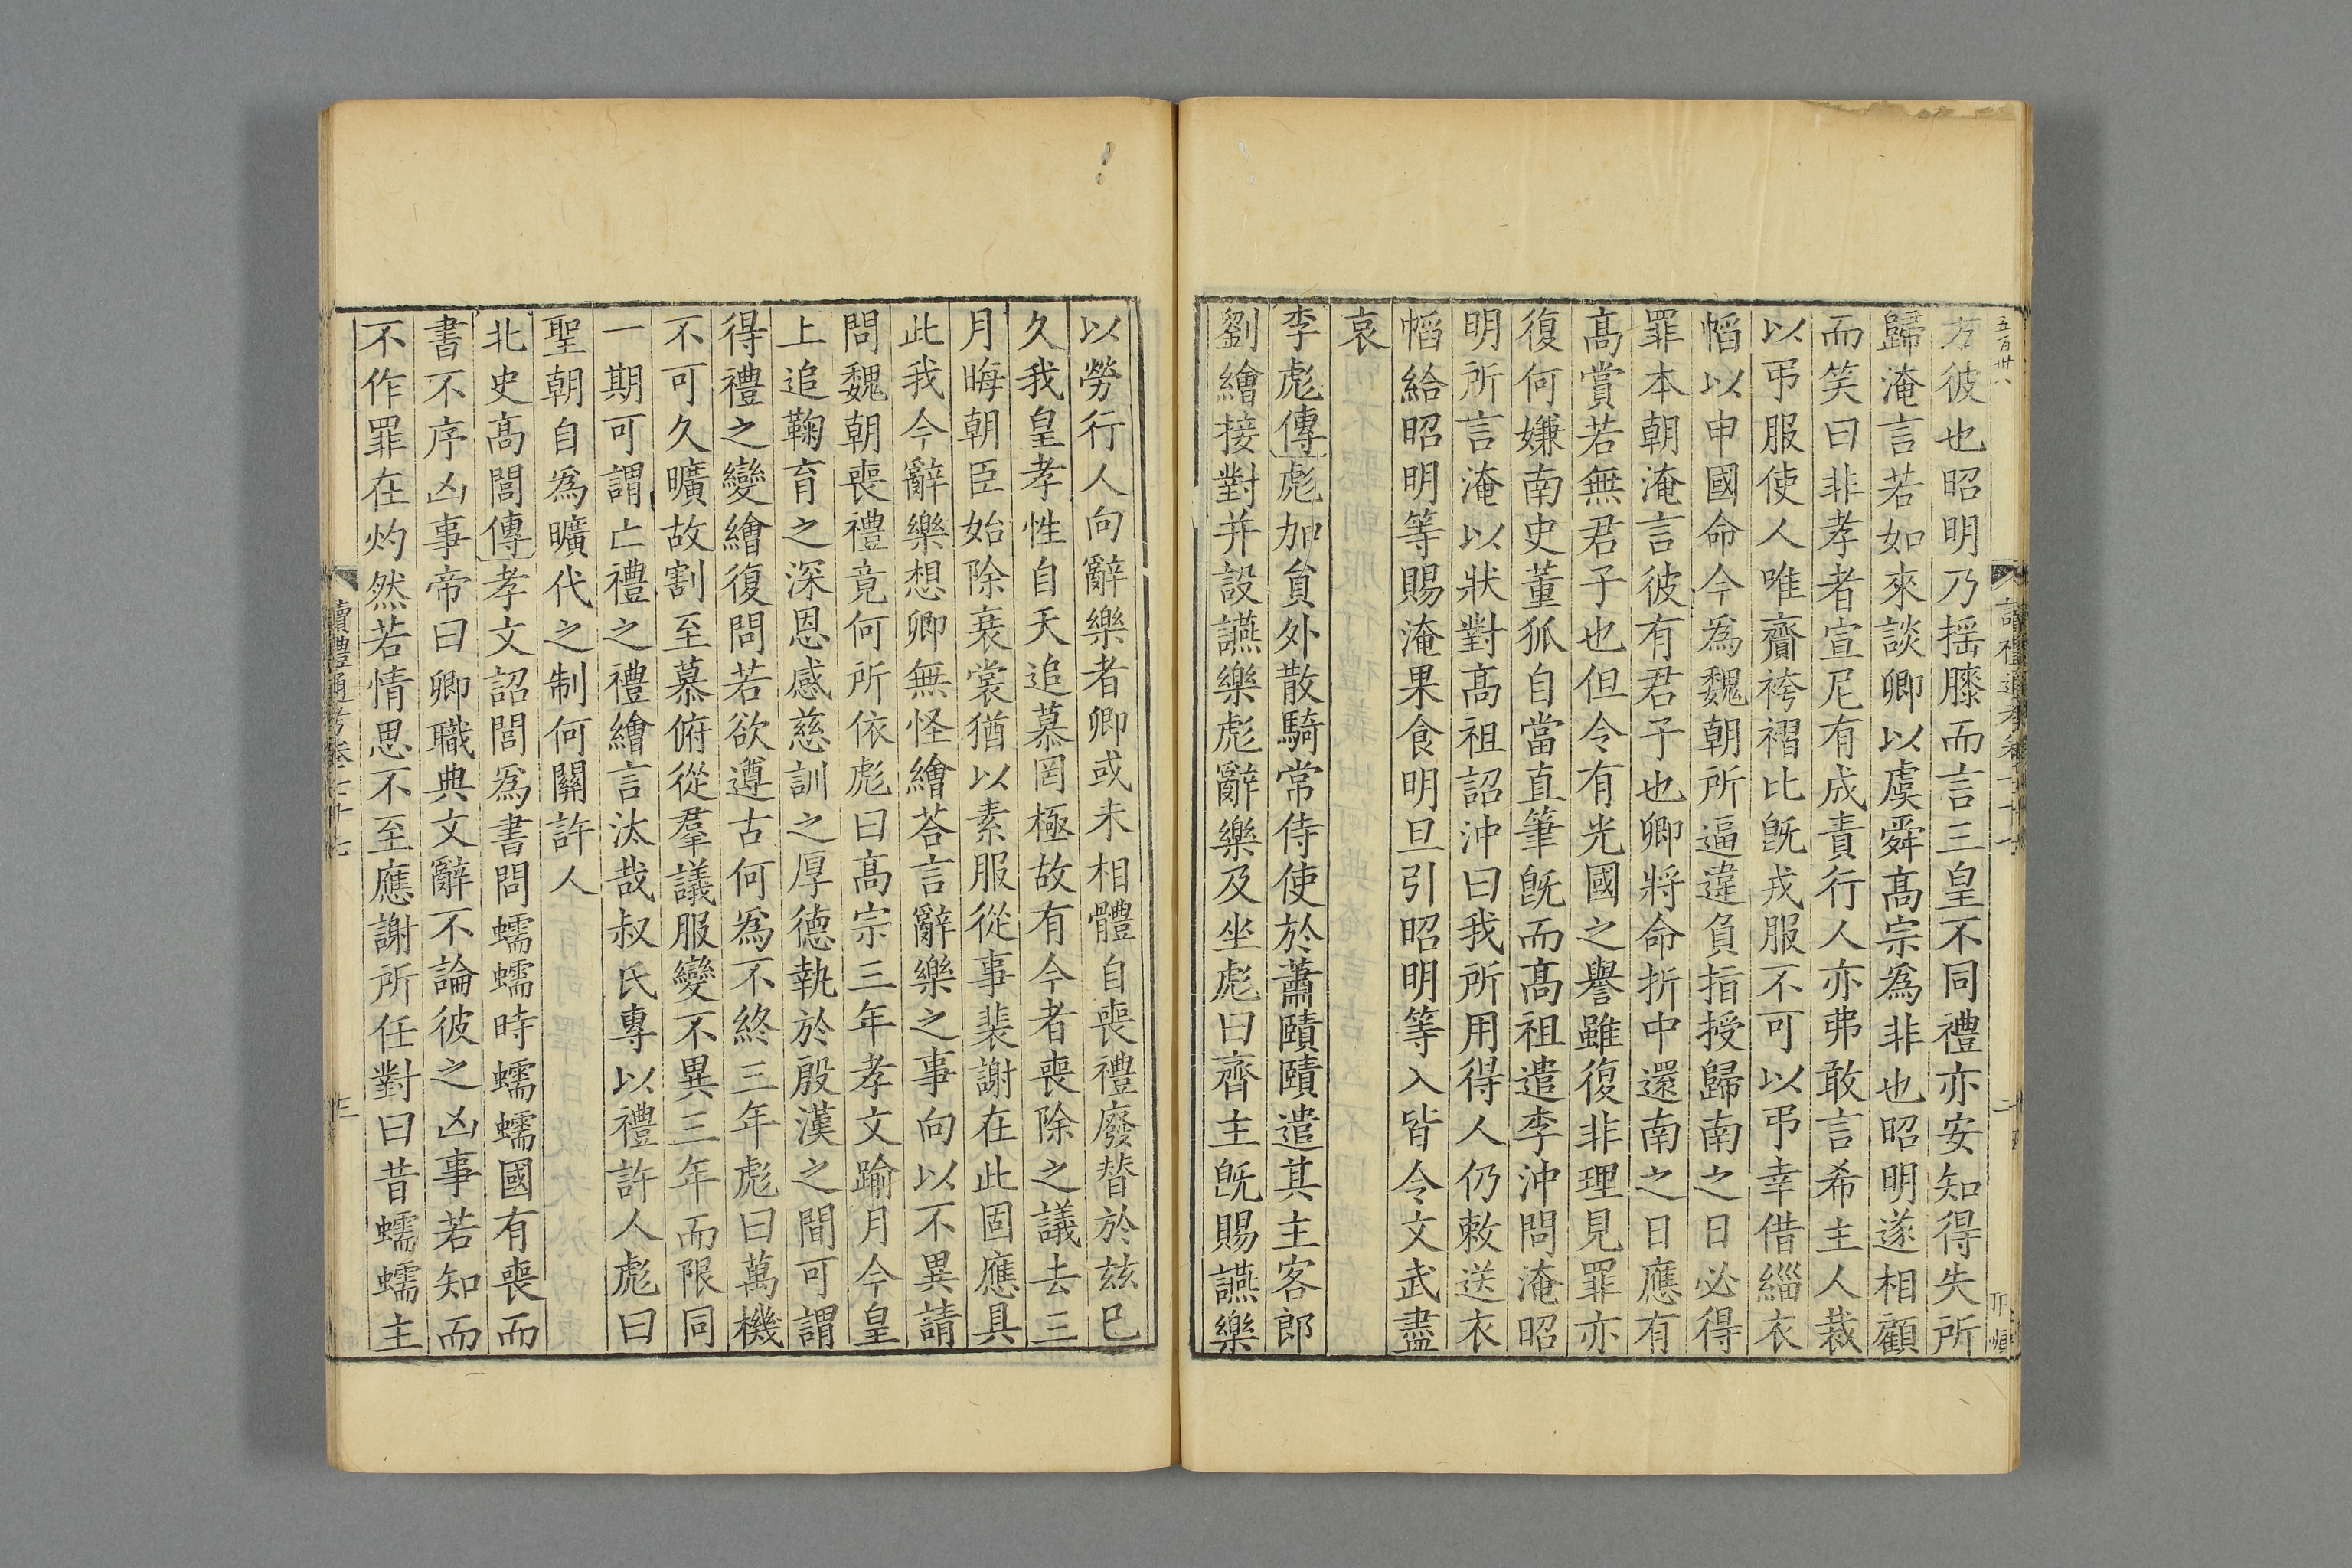 方彼也昭明乃揺膝而言三皇不同禮亦安知得失所
歸淹言若如來談卿以虞舜髙宗爲非也昭明遂相顧
而笑曰非孝者宣尼有成責行人亦弗敢言希主人裁
以弔服使人唯齎袴褶比旣戎服不可以弔幸借緇衣
㡌以申國命今爲魏朝所逼違負指授歸南之日必得
罪本朝淹言彼有君子也卿將命折中還南之日應有
髙賞若無君子也但令有光國之譽雖復非理見罪亦
復何嫌南史董狐自當直筆旣而髙祖遣李沖問淹昭
明所言淹以狀對髙祖詔沖曰我所用得人仍敕送衣
㡌給昭明等賜淹果食明旦引昭明等入皆令文武盡
哀
李彪傳彪加貟外散騎常侍使於蕭賾賾遣其主客郎
劉繪接對并設讌樂彪辭樂及坐彪曰齊主旣賜讌樂
以勞行人向辭樂者卿或未相體自喪禮廢替於兹已
久我皇孝性自天追慕罔極故有今者喪除之議去三
月晦朝臣始除衰裳猶以素服從事裴謝在此固應具
此我今辭樂想卿無怪繪荅言辭樂之事向以不異請
問魏朝喪禮竟何所依彪曰髙宗三年孝文踰月今皇
上追鞠育之深恩感慈訓之厚德執於殷漢之間可謂
得禮之變繪復問若欲遵古何爲不終三年彪曰萬機
不可久曠故割至慕俯從羣議服變不異三年而限同
一期可謂亡禮之禮繪言汰哉叔氏專以禮許人彪曰
聖朝自爲曠代之制何關許人
北史髙閭傳孝文詔閭爲書問蠕蠕時蠕蠕國有喪而
書不序凶事帝曰卿職典文辭不論彼之凶事若知而
不作罪在灼然若情思不至應謝所任對曰昔蠕蠕主
讀禮通考卷